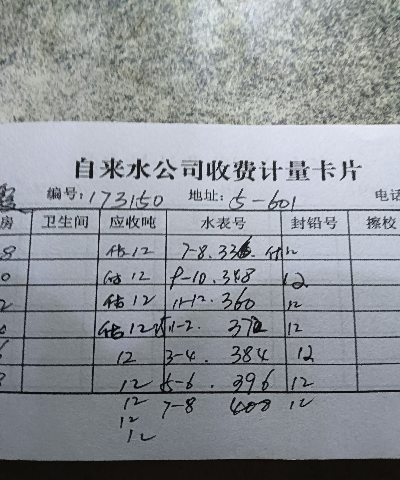 自来水公司收费计量卡片
编号: 173150 地址: 5-601 电话
房 卫生间 应收吨 水表号 封铅号 擦校
8 估12 7-8. 336. 估12
0 估12 9-10. 348 12
2 估12 11-12. 360 12
0 估12 1-2. 372 12
12 3-4. 384 12
8 12 5-6. 396 12
12 7-8 408 12
12
12